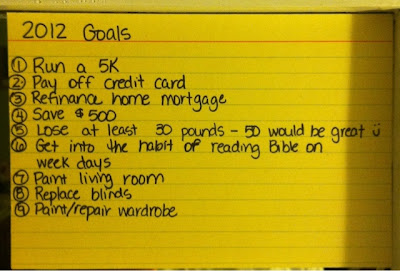 2012 Goals
① Run a 5K
② Pay off credit card
③ Refinance home mortgage
④ Save $500
⑤ Lose at least 30 pounds - 50 would be great ü
⑥ Get into the habit of reading Bible on
week days
⑦ Paint living room
⑧ Replace blinds
⑨ Paint/repair wardrobe